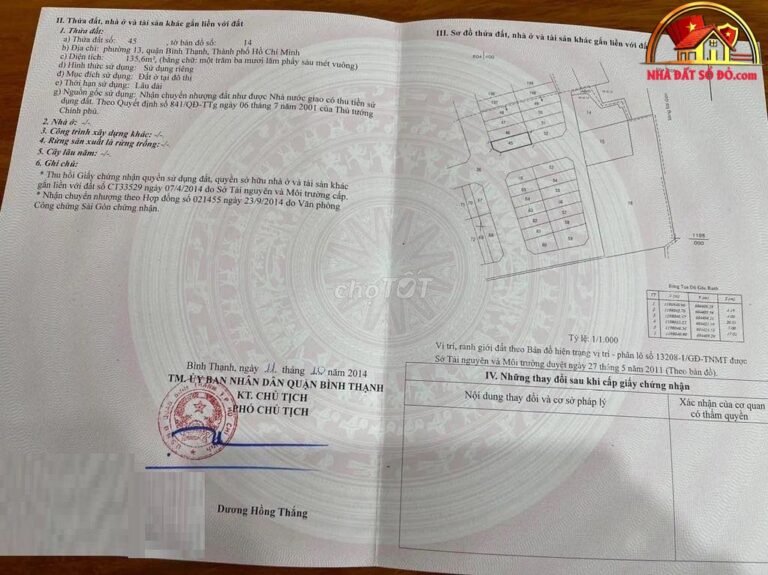 II. Thửa đất, nhà ở và tài sản khác gắn liền với đất
1. Thửa đất:
a) Thửa đất số: 45 , tờ bản đồ số: 14
b) Địa chỉ: phường 13, quận Bình Thạnh, Thành phố Hồ Chí Minh
c) Diện tích: 135,6m², (bằng chữ: một trăm ba mươi lăm phẩy sáu mét vuông)
d) Hình thức sử dụng: Sử dụng riêng
đ) Mục đích sử dụng: Đất ở tại đô thị
e) Thời hạn sử dụng: Lâu dài
g) Nguồn gốc sử dụng: Nhận chuyển nhượng đất như được Nhà nước giao có thu tiền sử
dụng đất. Theo Quyết định số 841/QĐ-TTg ngày 06 tháng 7 năm 2001 của Thủ tướng
Chính phủ.
2. Nhà ở: -/-
3. Công trình xây dựng khác: -/-
4. Rừng sản xuất là rừng trồng: -/-
5. Cây lâu năm: -/-
6. Ghi chú:
* Thu hồi Giấy chứng nhận quyền sử dụng đất, quyền sở hữu nhà ở và tài sản khác
gắn liền với đất số CT33529 ngày 07/4/2014 do Sở Tài nguyên và Môi trường cấp.
* Nhận chuyển nhượng theo Hợp đồng số 021455 ngày 23/9/2014 do Văn phòng
Công chứng Sài Gòn chứng nhận.
Bình Thạnh, ngày 11 tháng 10 năm 2014
TM. ỦY BAN NHÂN DÂN QUẬN BÌNH THẠNH
KT. CHỦ TỊCH
PHÓ CHỦ TỊCH
Dương Hồng Thắng
chợTỐT
NHÀ ĐẤT SỔ ĐỎ.com
III. Sơ đồ thửa đất, nhà ở và tài sản khác gắn liền với đất
604 400
46
45
14
36
78
1198
000
Bảng Tọa Độ Góc Ranh
Tỷ lệ: 1/1.000
Vị trí, ranh giới đất theo Bản đồ hiện trạng vị trí - phân lô số 13208-1/GĐ-TNMT được
Sở Tài nguyên và Môi trường duyệt ngày 27 tháng 5 năm 2011 (Theo bản đồ).
IV. Những thay đổi sau khi cấp giấy chứng nhận
Nội dung thay đổi và cơ sở pháp lý
Xác nhận của cơ quan
có thẩm quyền